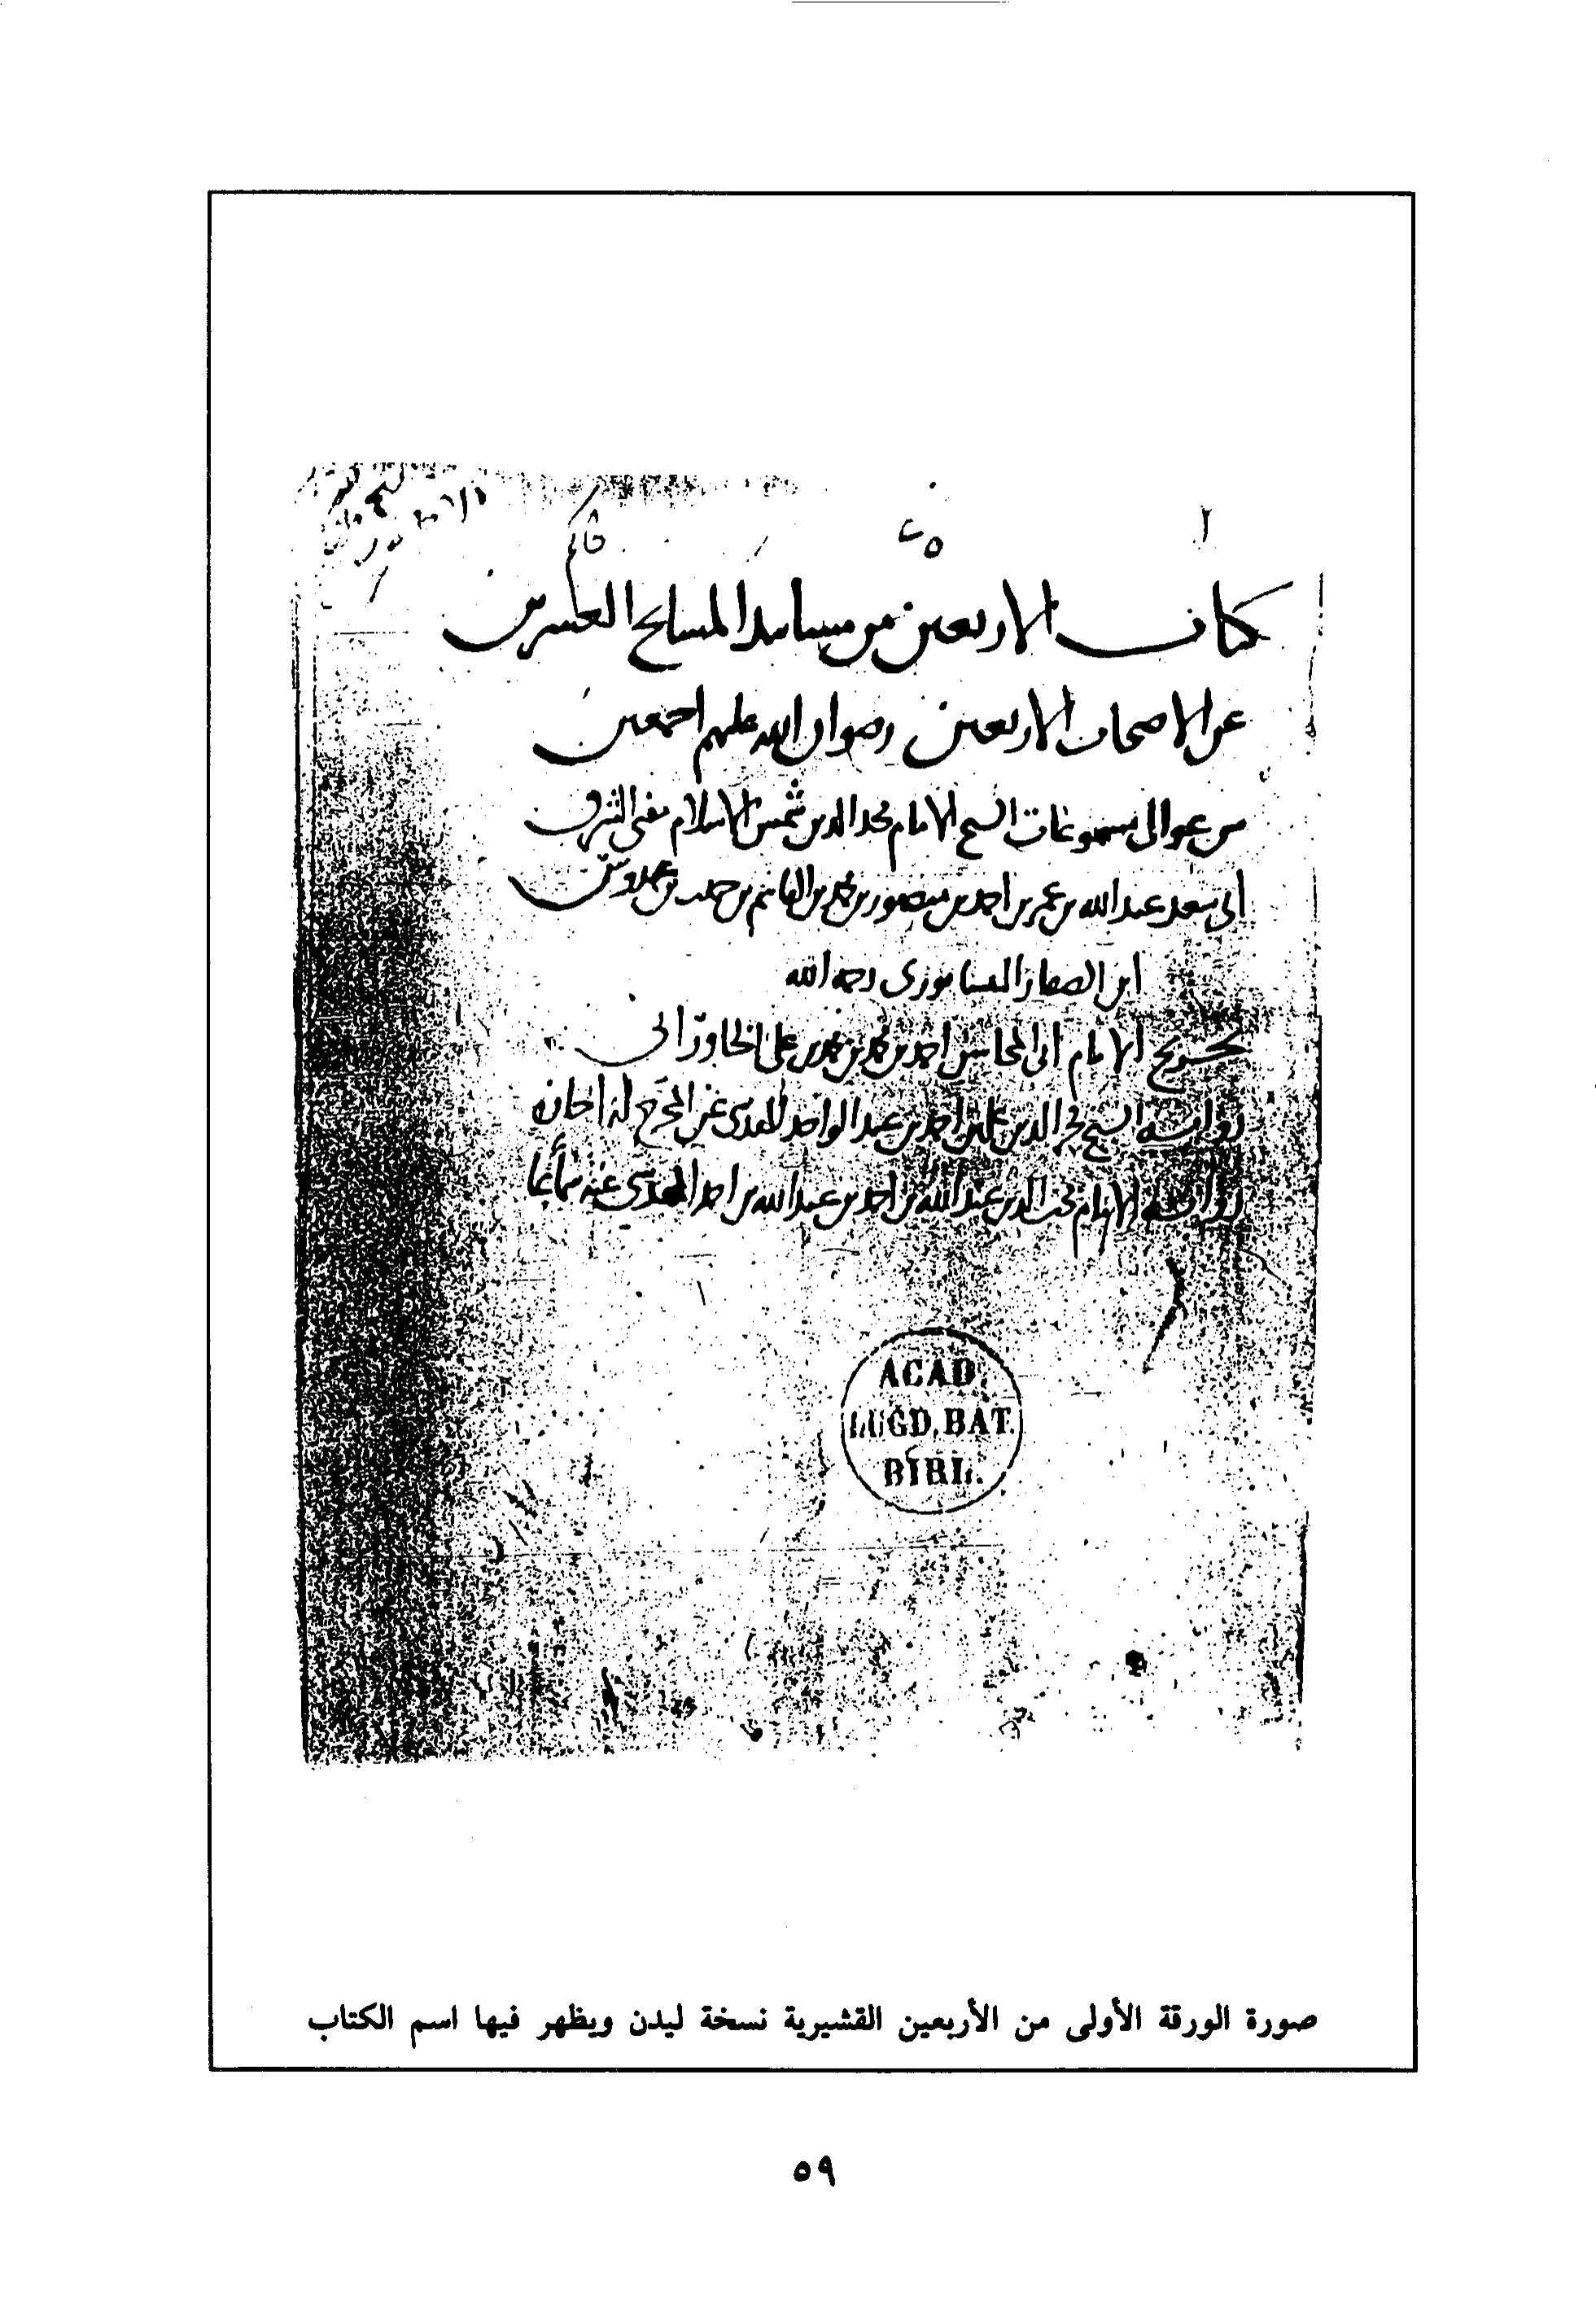 كتاب الاربعين من مسانيد المشايخ العشرين
عن الاصحاب الاربعين رضوان الله عليهم اجمعين
من عوالي مسموعات الشيخ الامام مجد الدين شمس الاسلام مفتي الشرق
ابي سعد عبد الله بن عمر بن احمد بن منصور بن محمد بن القاسم بن حبيب بن عبدوس
ابن الصفار النيسابوري رحمه الله
تخريج الامام ابي المحاسن احمد بن محمد بن محمد بن علي
رواية الشيخ فخر الدين علي بن احمد بن عبد الواحد المقدسي عن المخرج له اجازه
رواية الامام محب الدين عبد الله بن احمد بن عبد الله بن احمد المقدسي عنه سماعا
ACAD.
LUGD. BAT.
BIBL.
صورة الورقة الأولى من الأربعين القشيرية نسخة ليدن ويظهر فيها اسم الكتاب
٥٩